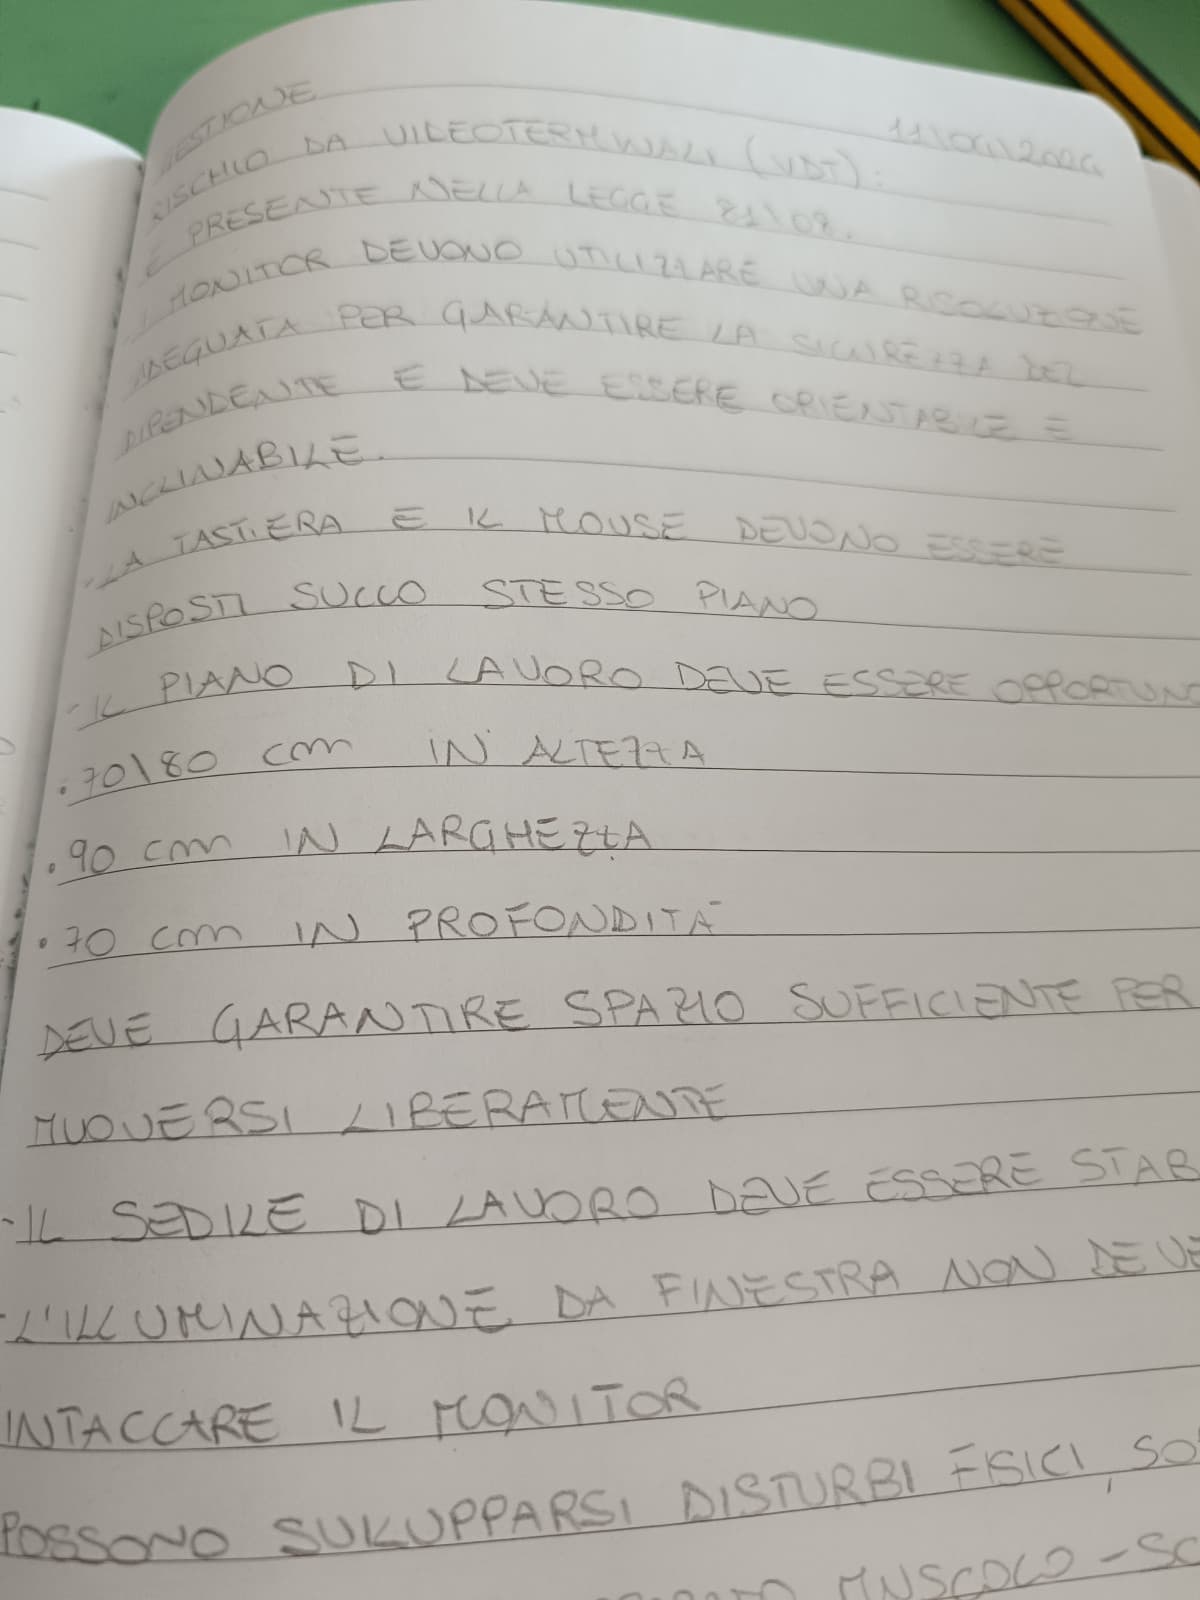 GESTIONE
11\04\2024
RISCHIO DA VIDEOTERMINALI (VDT):
È PRESENTE NELLA LEGGE 81\08.
I MONITOR DEVONO UTILIZZARE UNA RISOLUZIONE
ADEGUATA PER GARANTIRE LA SICUREZZA DEL
DIPENDENTE E DEVE ESSERE ORIENTABILE E
INCLINABILE.
-LA TASTIERA E IL MOUSE DEVONO ESSERE
DISPOSTI SULLO STESSO PIANO
-IL PIANO DI LAVORO DEVE ESSERE OPPORTUNO
.70\80 cm IN ALTEZZA
.90 cm IN LARGHEZZA
.70 cm IN PROFONDITÀ
DEVE GARANTIRE SPAZIO SUFFICIENTE PER
MUOVERSI LIBERAMENTE
-IL SEDILE DI LAVORO DEVE ESSERE STAB
-L'ILLUMINAZIONE DA FINESTRA NON DEVE
INTACCARE IL MONITOR
POSSONO SVILUPPARSI DISTURBI FISICI, SO
MUSCOLO-SC